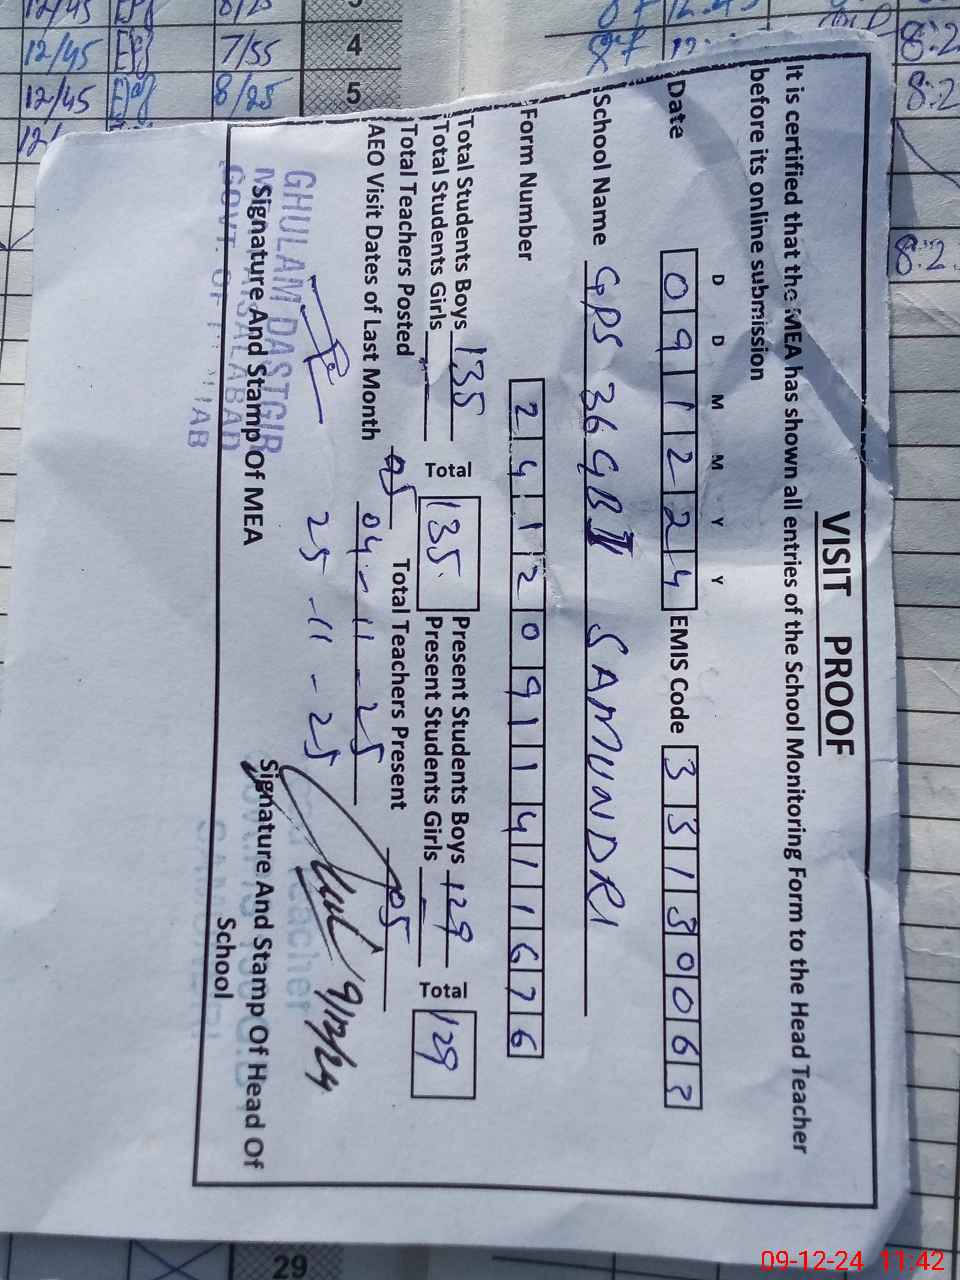 VISIT PROOF
It is certified that the MEA has shown all entries of the School Monitoring Form to the Head Teacher
before its online submission
D D M M Y Y
Date 091224 EMIS Code 33130063
School Name GPS 36 GB II SAMUNDRI
Form Number 24120911411676
Total Students Boys 135 Total 135 Present Students Boys 129 Total 129
Total Students Girls — Present Students Girls —
Total Teachers Posted 05 Total Teachers Present 05
AEO Visit Dates of Last Month 04-11-25
25-11-25
9/12/24
GHULAM DASTGIR
Signature And Stamp Of MEA
Signature And Stamp Of Head Of
School
12/45 7/55 4
12/45 8/25 5
29
09-12-24 11:42